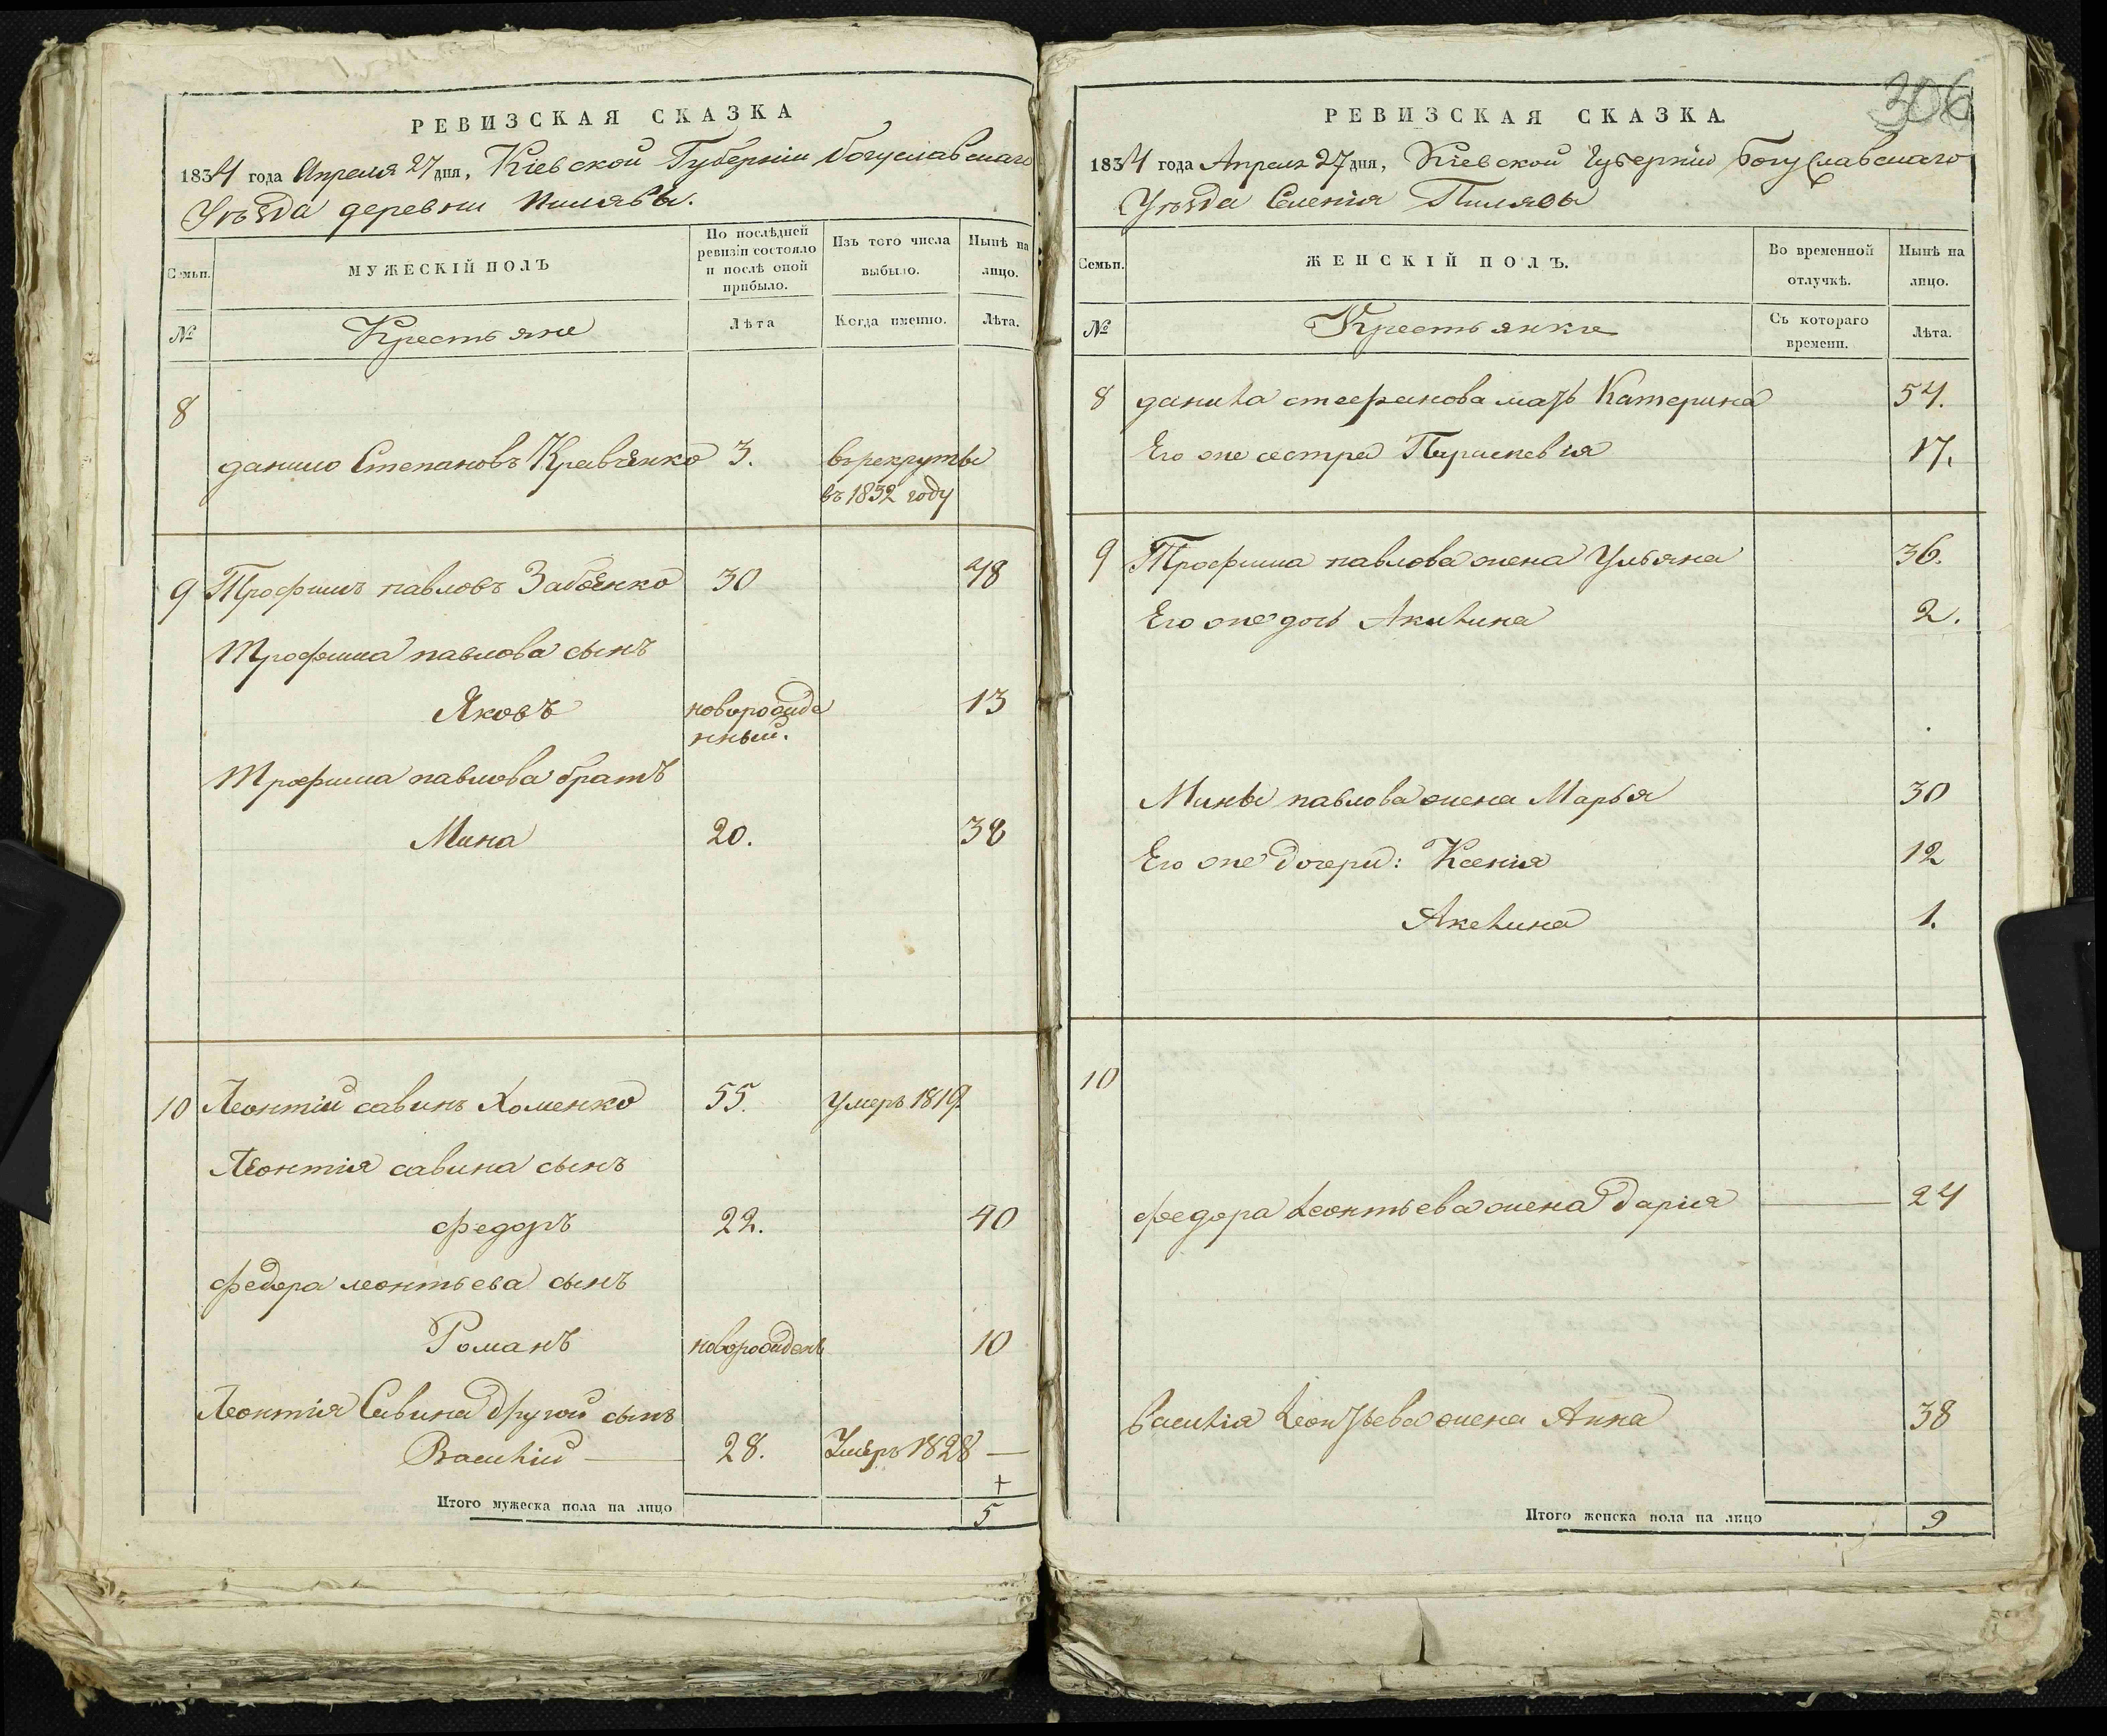 РЕВИЗСКАЯ СКАЗКА
1834 года Апреля 27 дня, Кіевской Губерніи Богуславскаго
Уѣзда деревни Пилявы.
Семьи.
МУЖЕСКІЙ ПОЛЪ
По послѣдней ревизіи состояло и послѣ оной прибыло.
Изъ того числа выбыло.
Нынѣ на лицо.
№
Крестьяне
Лѣта
Когда именно.
Лѣта.
8
данило Степановъ Кравченко 3. въ рекруты
въ 1832 году
9 Трофимъ павловъ 30 48
Трофима павлова сынъ
Яковъ новорожде 13
нный.
Трофима павлова братъ
Мина 20. 38
10 Леонтій савинъ Хоменко 55. умеръ 1819
Леонтія савина сынъ
федоръ 22. 40
федора леонтьева сынъ
Романъ новорожденъ 10
Леонтія Савина другой сынъ
Василій 28. Умеръ 1828 —
Итого мужеска пола на лицо 5
306
РЕВИЗСКАЯ СКАЗКА.
1834 года Апреля 27 дня, Кіевской Губерніи Богуславскаго
Уѣзда Селенія Пилявы
Семьи.
ЖЕНСКІЙ ПОЛЪ.
Во временной отлучкѣ.
Нынѣ на лицо.
№
Крестьянки
Съ котораго времени.
Лѣта.
8 данила стефанова мать Катерина 54.
Его же сестра Параскевія 17.
9 Трофима павлова жена Ульяна 36.
Его же дочь Акилина 2.
Мины павлова жена Марья 30
Его же дочери: Ксенія 12
Акелина 1.
10
федора Леонтьева жена Дарія — 24
Василія Леонтьева жена Анна 38
Итого женска пола на лицо 9